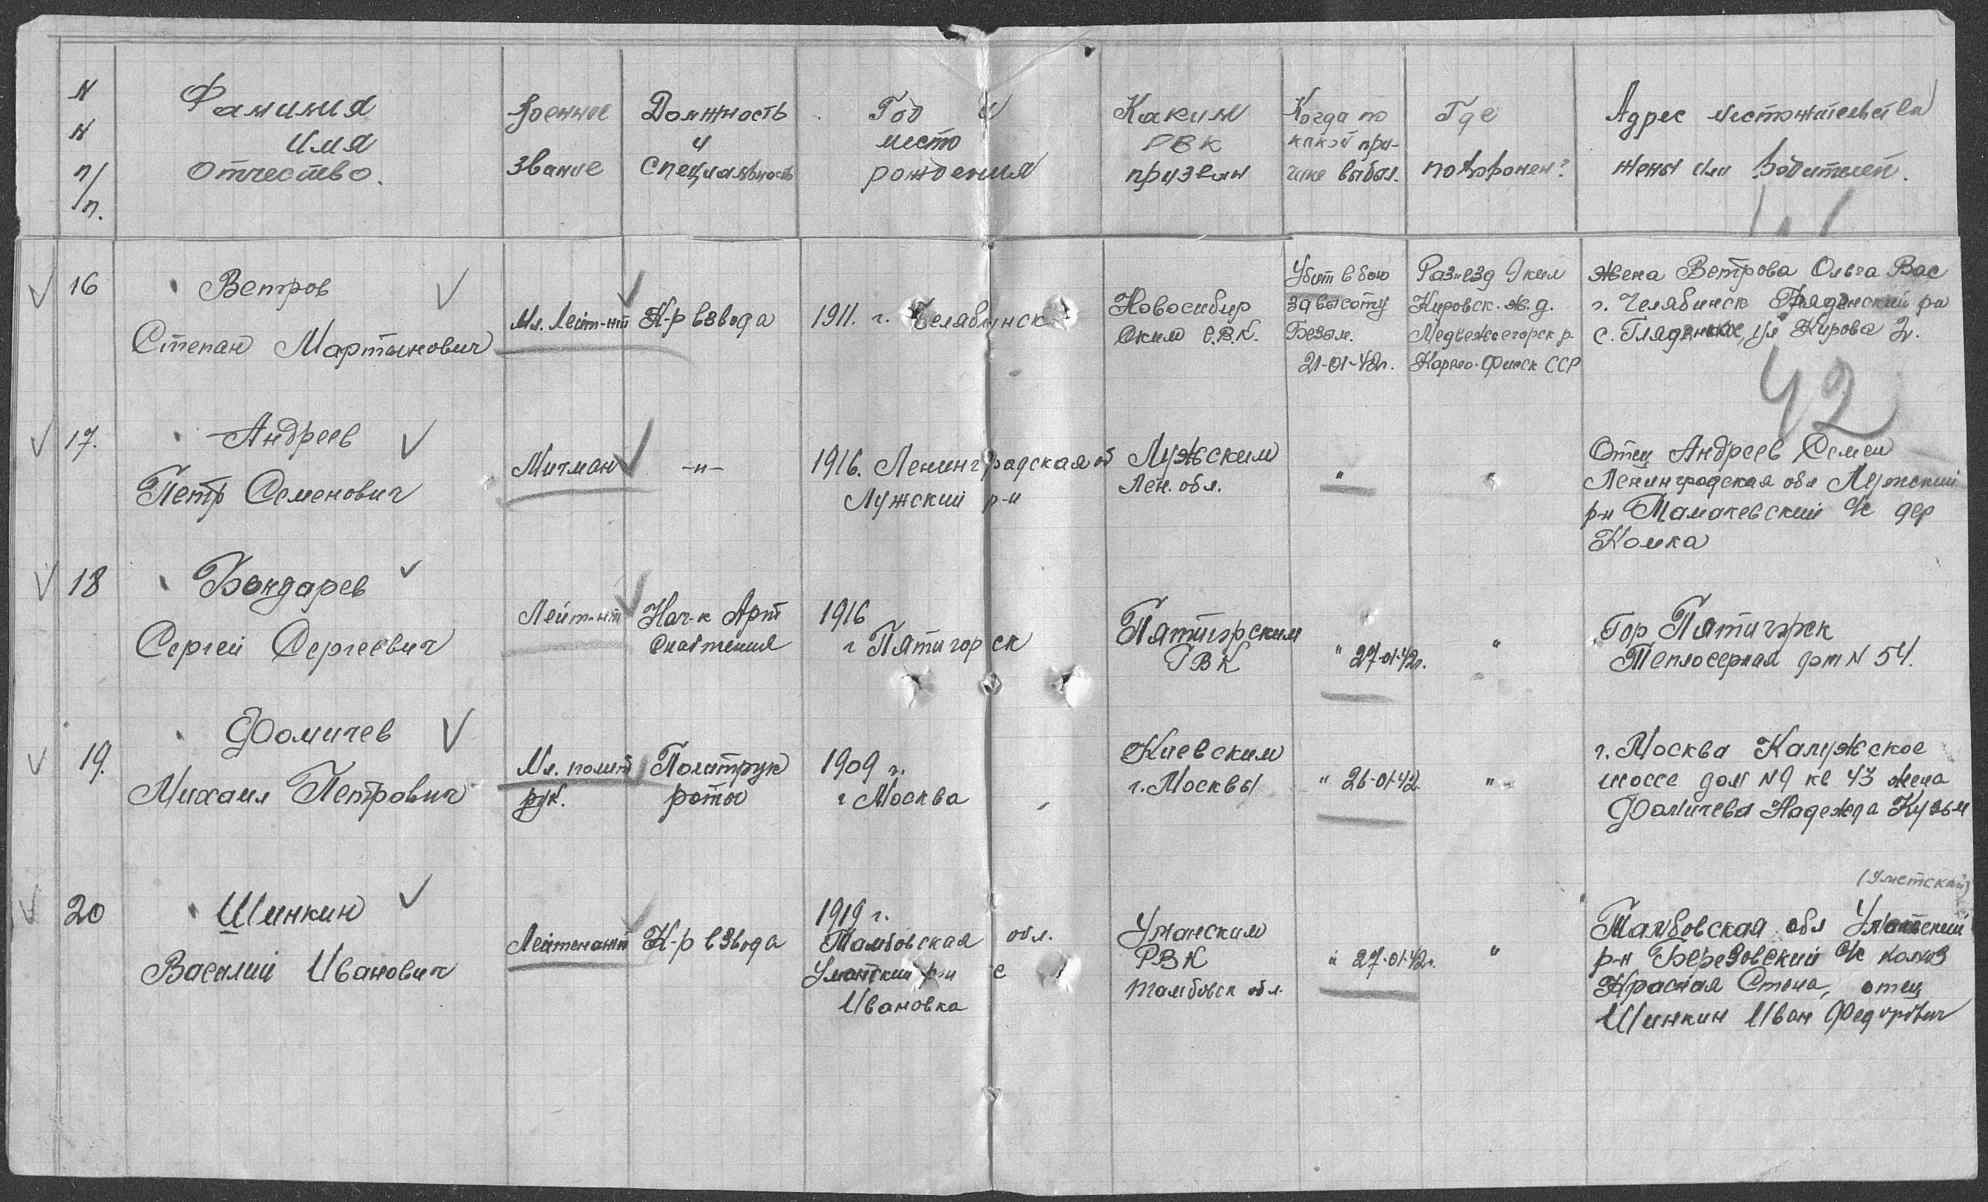 N
N
п/
/п.
Фамилия
Имя
Отчество.
Военное
звание
Должность
и
специальность
Год и
место
рождения
Каким
РВК
призван
Когда по
какой при-
чине выбыл.
Где
похоронен?
Адрес местожительства
жены или родителей.
16
Ветров
Степан Мартынович
Мл. Лейт-нт
К-р взвода
1911. г. Челябинск
Новосибир
ским Г.В.К.
Убит в бою
за высоту
Безым.
21-01-42г.
Разъезд 9 ким
Кировск. ж. д.
Медвежьегорск р.
Карело-Финск ССР
жена Ветрова Ольга Вас
г. Челябинск ра
с. ул Кирова 2.
42
17.
Андреев
Петр Семенович
Мичман
-"-
1916. Ленинградская об
Лужский р-н
Лужским
Лен. обл.
"
"
Отец Андреев Семен
Ленинградская обл Лужский
р-н с/с дер
Комка
18
Бондарев
Сергей Сергеевич
Лейт-нт
Нач-к Арт
снабжения
1916
г Пятигорск
Пятигорским
ГВК
" 27-01-42г.
"
Гор Пятигорск
Теплосерная дом N 54.
19.
Фомичев
Михаил Петрович
Мл. полит
рук.
Политрук
роты
1909 г.
г Москва
Киевским
г. Москвы
" 26-01-42.
"
г. Москва Калужское
шоссе дом N9 кв 43 жена
Фомичева Надежда Кузьм
20
Шинкин
Василий Иванович
Лейтенант
К-р взвода
1919 г.
Тамбовская обл.
Уметский р-н с
Ивановка
РВК
Тамбовск обл.
" 27-01-42г.
"
(Уметский)
Тамбовская обл Уметский
р-н Березовский с/с колхоз
Красная Стена, отец
Шинкин Иван Федорович